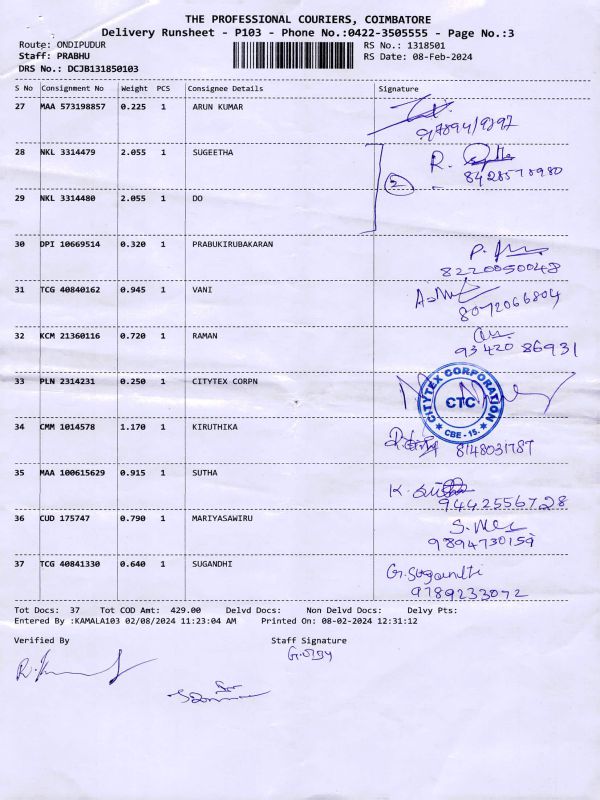 THE PROFESSIONAL COURIERS, COIMBATORE
Delivery Runsheet - P103 - Phone No.:0422-3505555 - Page No.:3
Route: ONDIPUDUR
RS No.: 1318501
Staff: PRABHU
RS Date: 08-Feb-2024
DRS No.: DCJB131850103
S No Consignment No Weight PCS Consignee Details Signature
27 MAA 573198857 0.225 1 ARUN KUMAR
28 NKL 3314479 2.055 1 SUGEETHA R.
2
29 NKL 3314480 2.055 1 DO
30 DPI 10669514 0.320 1 PRABUKIRUBAKARAN
8220050048
31 TCG 40840162 0.945 1 VANI
8072066804
32 KCM 21360116 0.720 1 RAMAN
93420 86931
33 PLN 2314231 0.250 1 CITYTEX CORPN
CITYTEX CORPORATION
CTC
CBE - 15.
34 CMM 1014578 1.170 1 KIRUTHIKA
8148031787
35 MAA 100615629 0.915 1 SUTHA
9442556728
36 CUD 175747 0.790 1 MARIYASAWIRU
9894730159
37 TCG 40841330 0.640 1 SUGANDHI
G. Sugandhi
9789233072
Tot Docs: 37 Tot COD Amt: 429.00 Delvd Docs: Non Delvd Docs: Delvy Pts:
Entered By :KAMALA103 02/08/2024 11:23:04 AM Printed On: 08-02-2024 12:31:12
Verified By Staff Signature